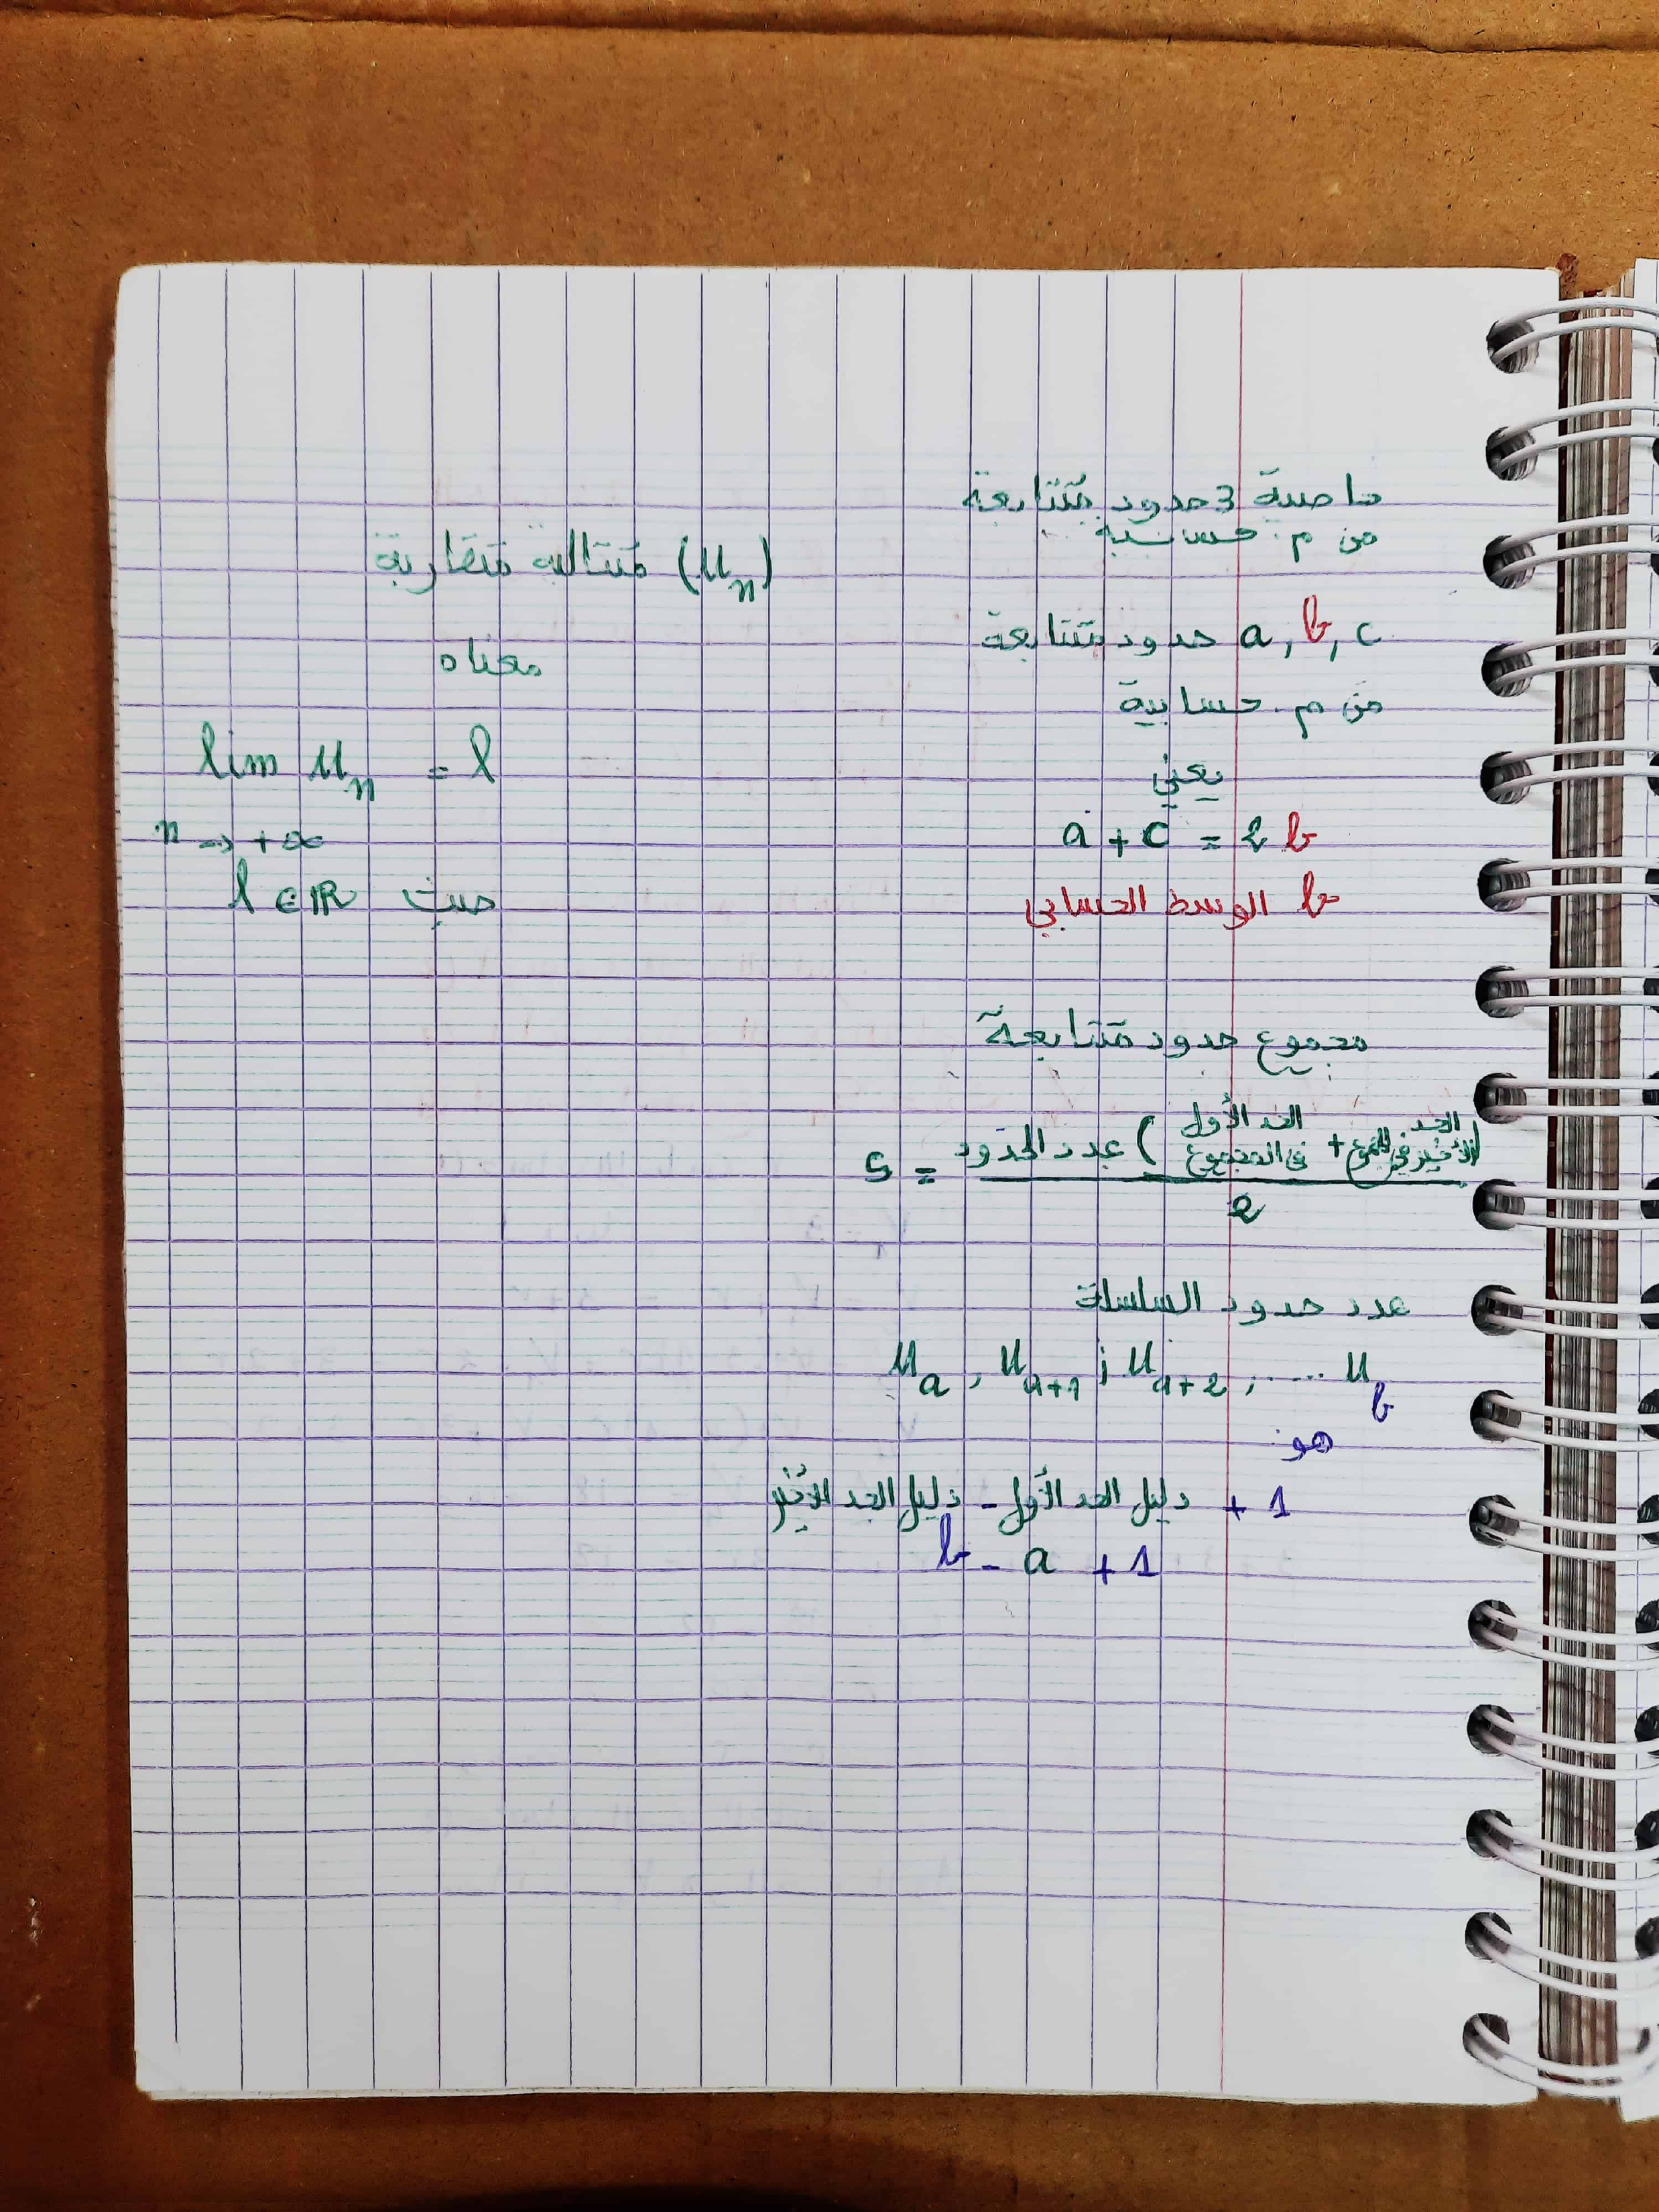 خاصية 3 حدود متتابعة
من م. حسابية
a, b, c حدود متتابعة
من م. حسابية
يعني
a + c = 2b
b الوسط الحسابي
مجموع حدود متتابعة
S = عدد الحدود (الحد الأول في المجموع + الحد الأخير في المجموع) / 2
عدد حدود السلسلة
u_a , u_{a+1} ; u_{a+2} , ..... u_b
هو
دليل الحد الأخير - دليل الحد الأول + 1
b - a + 1
(u_n) متتالية متقاربة
معناه
lim u_n = l
n → +∞
حيث l ∈ ℝ